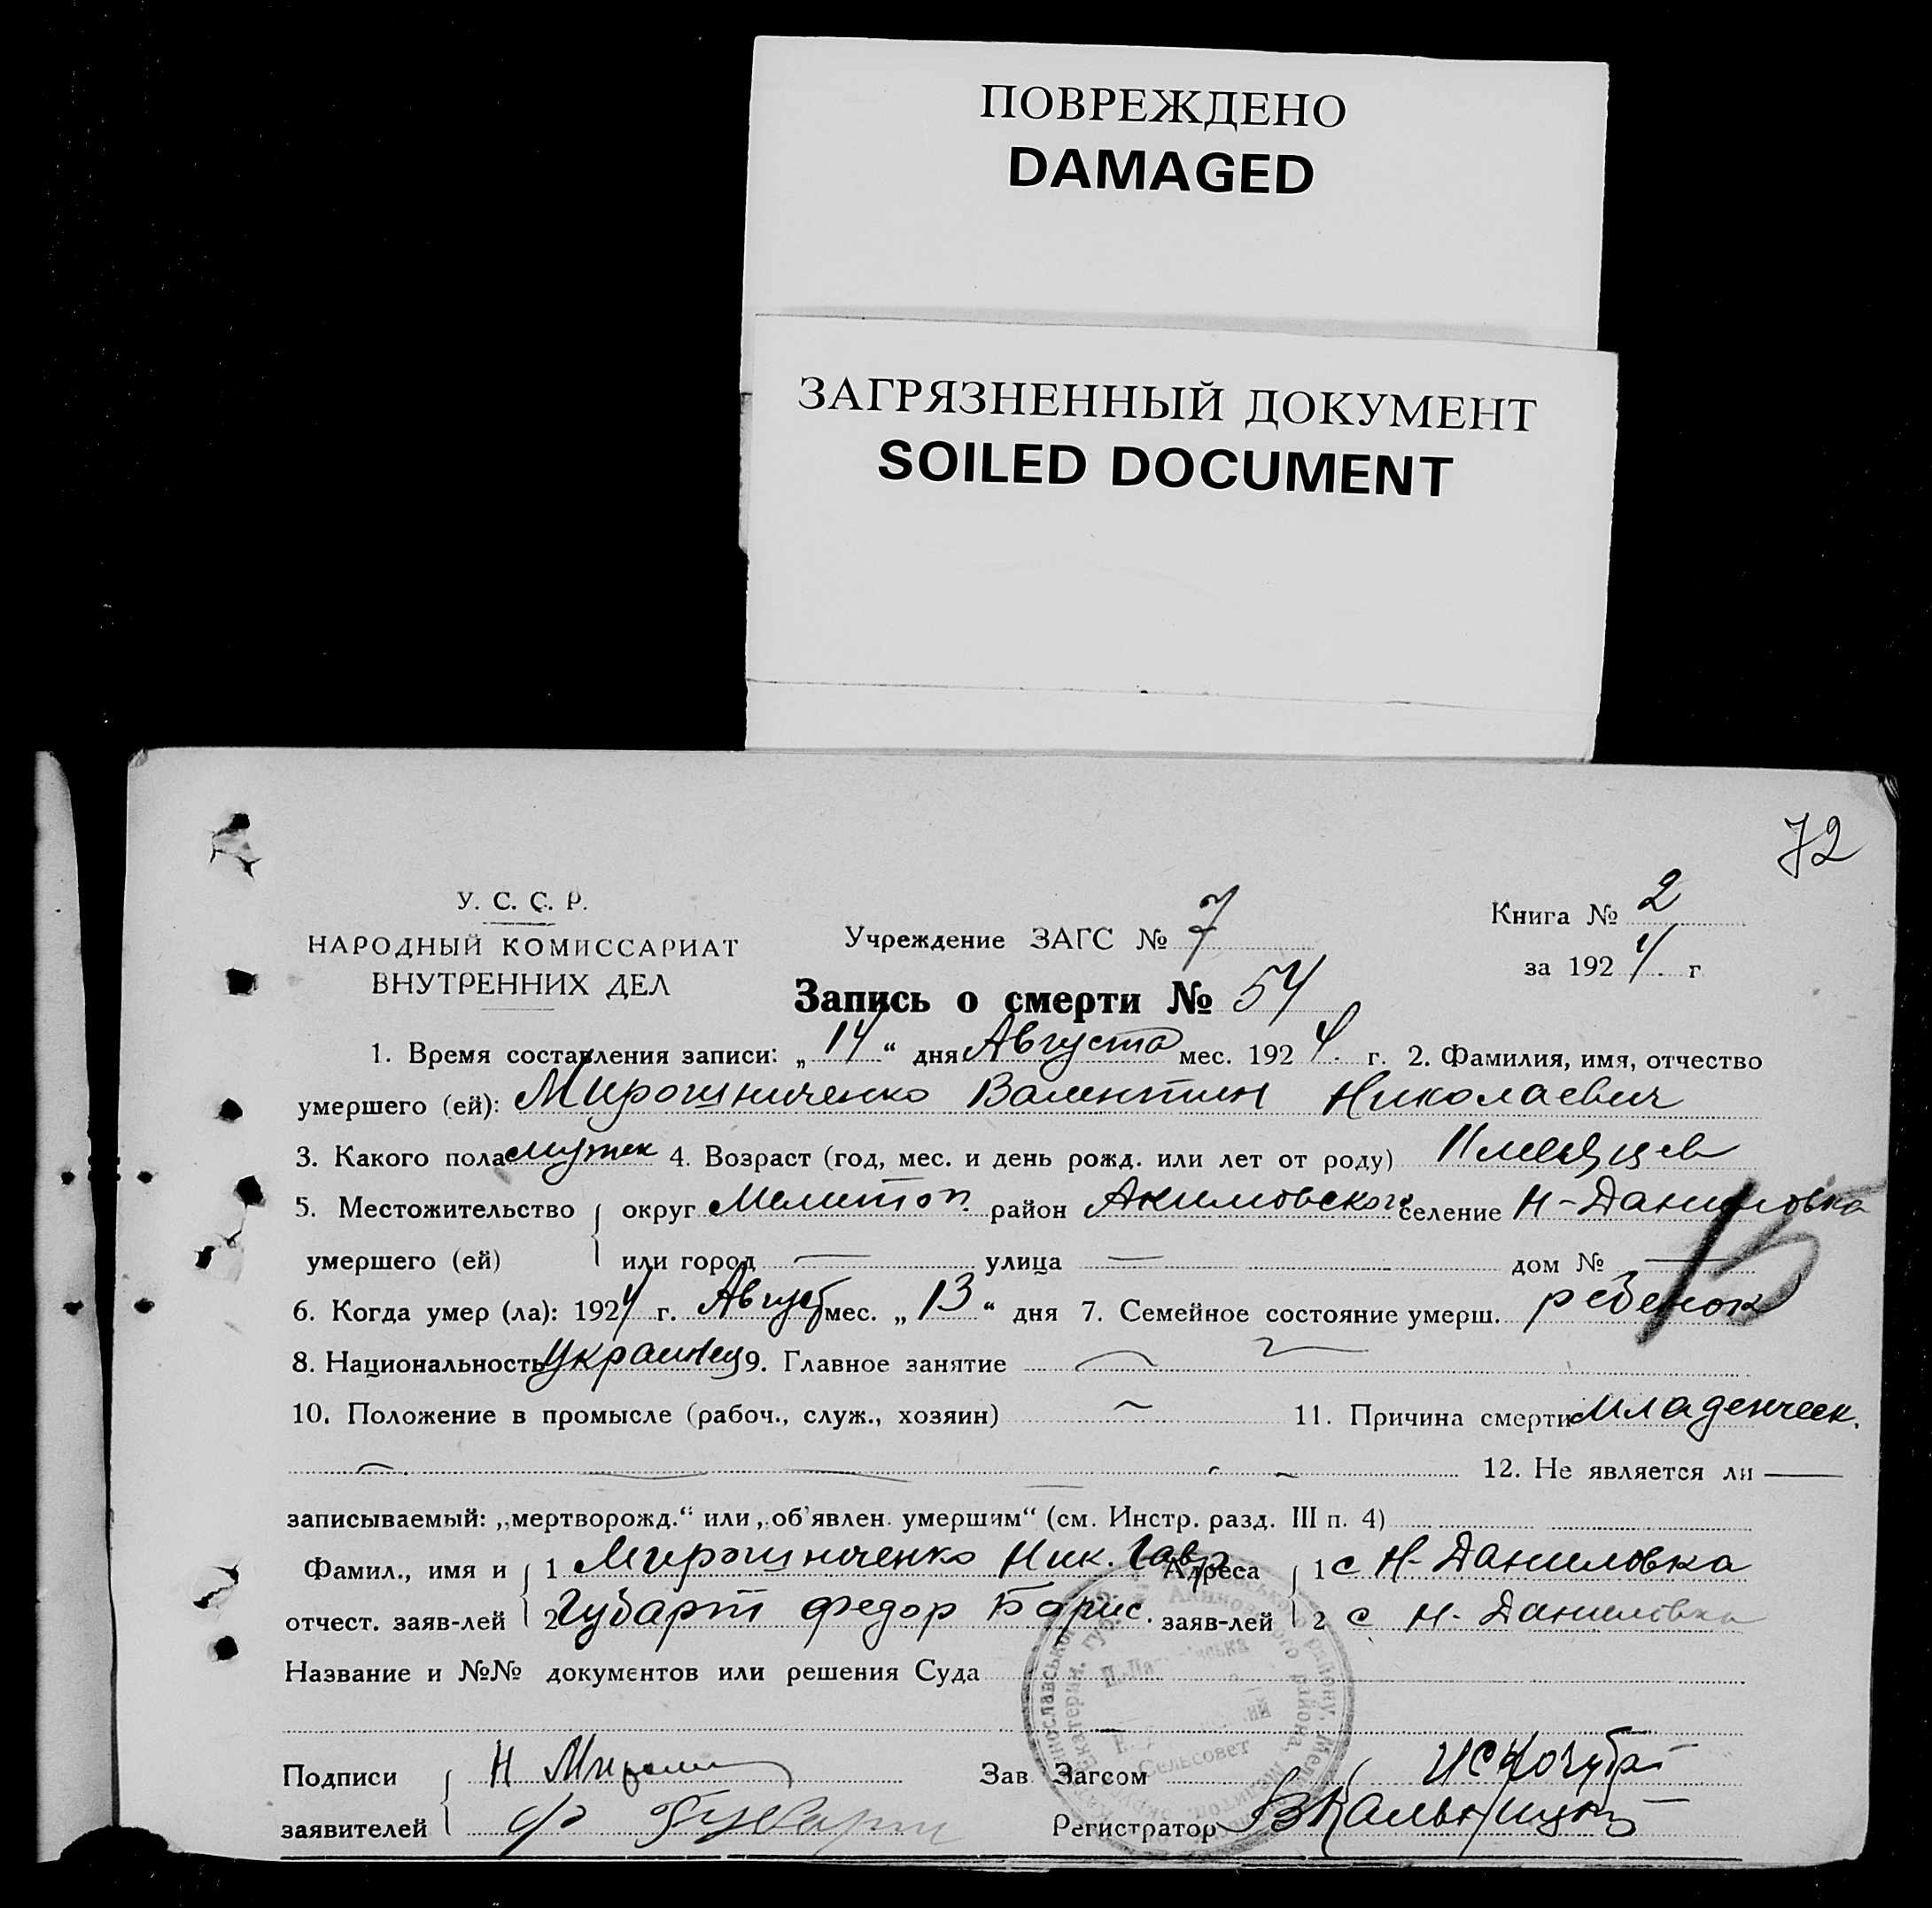 ПОВРЕЖДЕНО
DAMAGED
ЗАГРЯЗНЕННЫЙ ДОКУМЕНТ
SOILED DOCUMENT
72
У. С. С. Р.
НАРОДНЫЙ КОМИССАРИАТ
ВНУТРЕННИХ ДЕЛ
Учреждение ЗАГС № 7
Книга № 2
за 1924 г
Запись о смерти № 54
1. Время составления записи: „14“ дня Августа мес. 1924. г. 2. Фамилия, имя, отчество
умершего (ей): Мирошниченко Валентин Николаевич
3. Какого пола мужск 4. Возраст (год, мес. и день рожд. или лет от роду) 11 месяцев
5. Местожительство округ Мелитоп. район Акимовского селение Н-Даниловка
умершего (ей) или город — улица — дом № —
6. Когда умер (ла): 1924 г. Август мес. „13“ дня 7. Семейное состояние умерш. ребенок
8. Национальность Украинец 9. Главное занятие —
10. Положение в промысле (рабоч., служ., хозяин) — 11. Причина смерти Младенческ.
12. Не является ли —
записываемый: „мертворожд.“ или „об'явлен умершим“ (см. Инстр. разд. III п. 4)
Фамил., имя и 1 Мирошниченко Ник. Гавр Адреса 1 с Н-Даниловка
отчест. заяв-лей 2 Губарт Федор Борис. заяв-лей 2 с Н-Даниловка
Название и №№ документов или решения Суда
Сельсовет
Подписи Н Зав Загсом
заявителей Ф Губарт Регистратор